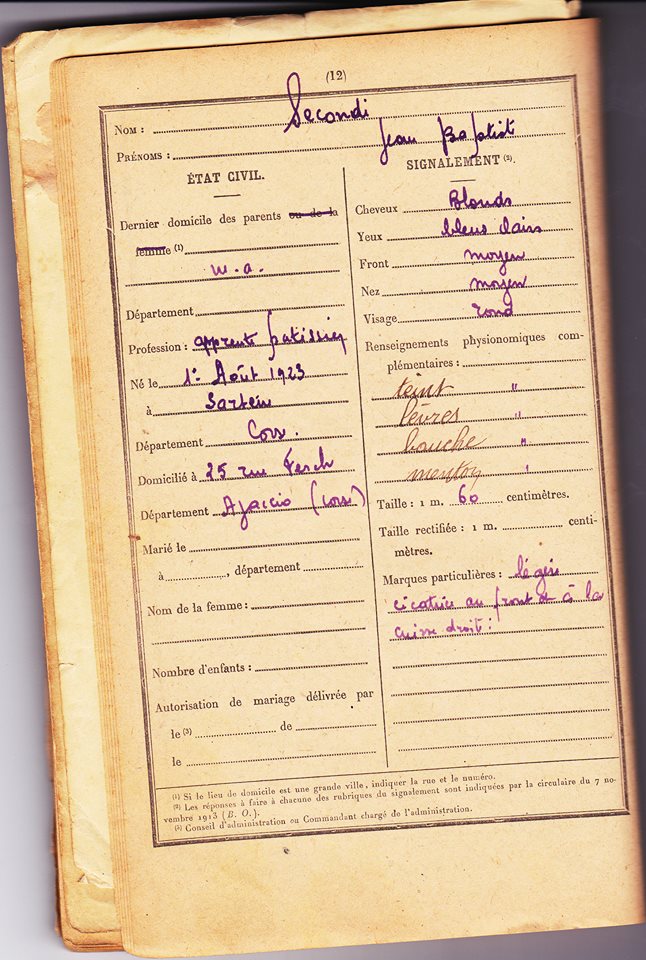 (12)
NOM : Secondi
PRÉNOMS : Jean Baptist
ÉTAT CIVIL.
Dernier domicile des parents ou de la
femme (1)
Département
Profession : apprenti patissier
Né le 1er Août 1923
à Sartène
Département Corse
Domicilié à 25 rue Fesch
Département Ajaccio (Corse)
Marié le
à , département
Nom de la femme :
Nombre d'enfants :
Autorisation de mariage délivrée par
le (3) de
le
SIGNALEMENT (2).
Cheveux Blonds
Yeux bleus clairs
Front moyen
Nez moyen
Visage rond
Renseignements physionomiques com-
plémentaires :
teint "
lèvres "
bouche "
menton "
Taille : 1 m. 60 centimètres.
Taille rectifiée : 1 m. centi-
mètres.
Marques particulières : légère
cicatrice au front et à la
cuisse droit :
(1) Si le lieu de domicile est une grande ville, indiquer la rue et le numéro.
(2) Les réponses à faire à chacune des rubriques du signalement sont indiquées par la circulaire du 7 no-
vembre 1913 (B. O.).
(3) Conseil d'administration ou Commandant chargé de l'administration.